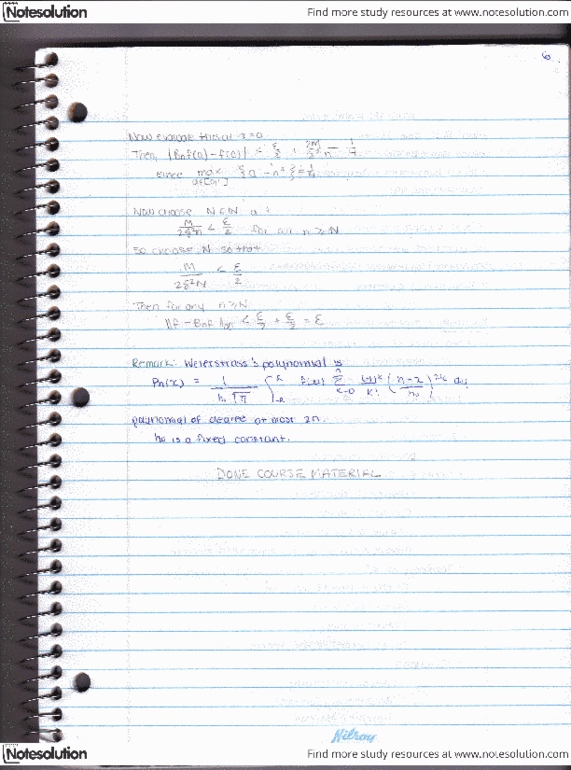 Notesolution
Find more study resources at www.notesolution.com
6
Now evaluate this at x=a
Then, |Bnf(a) - f(a)| < ε/2 + 2M/δ² n · 1/4
since max a∈[0,1] {a - a²} = 1/4
Now choose N∈N
M/2δ²n < ε/2 for all n ≥ N
So choose N so that
M/2δ²N < ε/2
Then for any n ≥ N
||f - Bnf||∞ < ε/2 + ε/2 = ε
Remark: Weierstrass's polynomial is
Pn(x) = 1/h₀√π ∫
polynomial of degree at most 2n.
h₀ is a fixed constant.
DONE COURSE MATERIAL
Hilroy
Notesolution
Find more study resources at www.notesolution.com